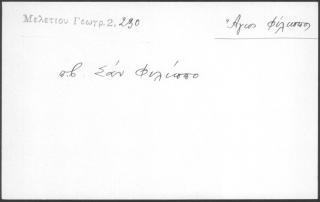 Μελετίου Γεωγρ. 2, 230
Ἅγιος Φίλιππος
πβ. Σὰν Φιλίππο